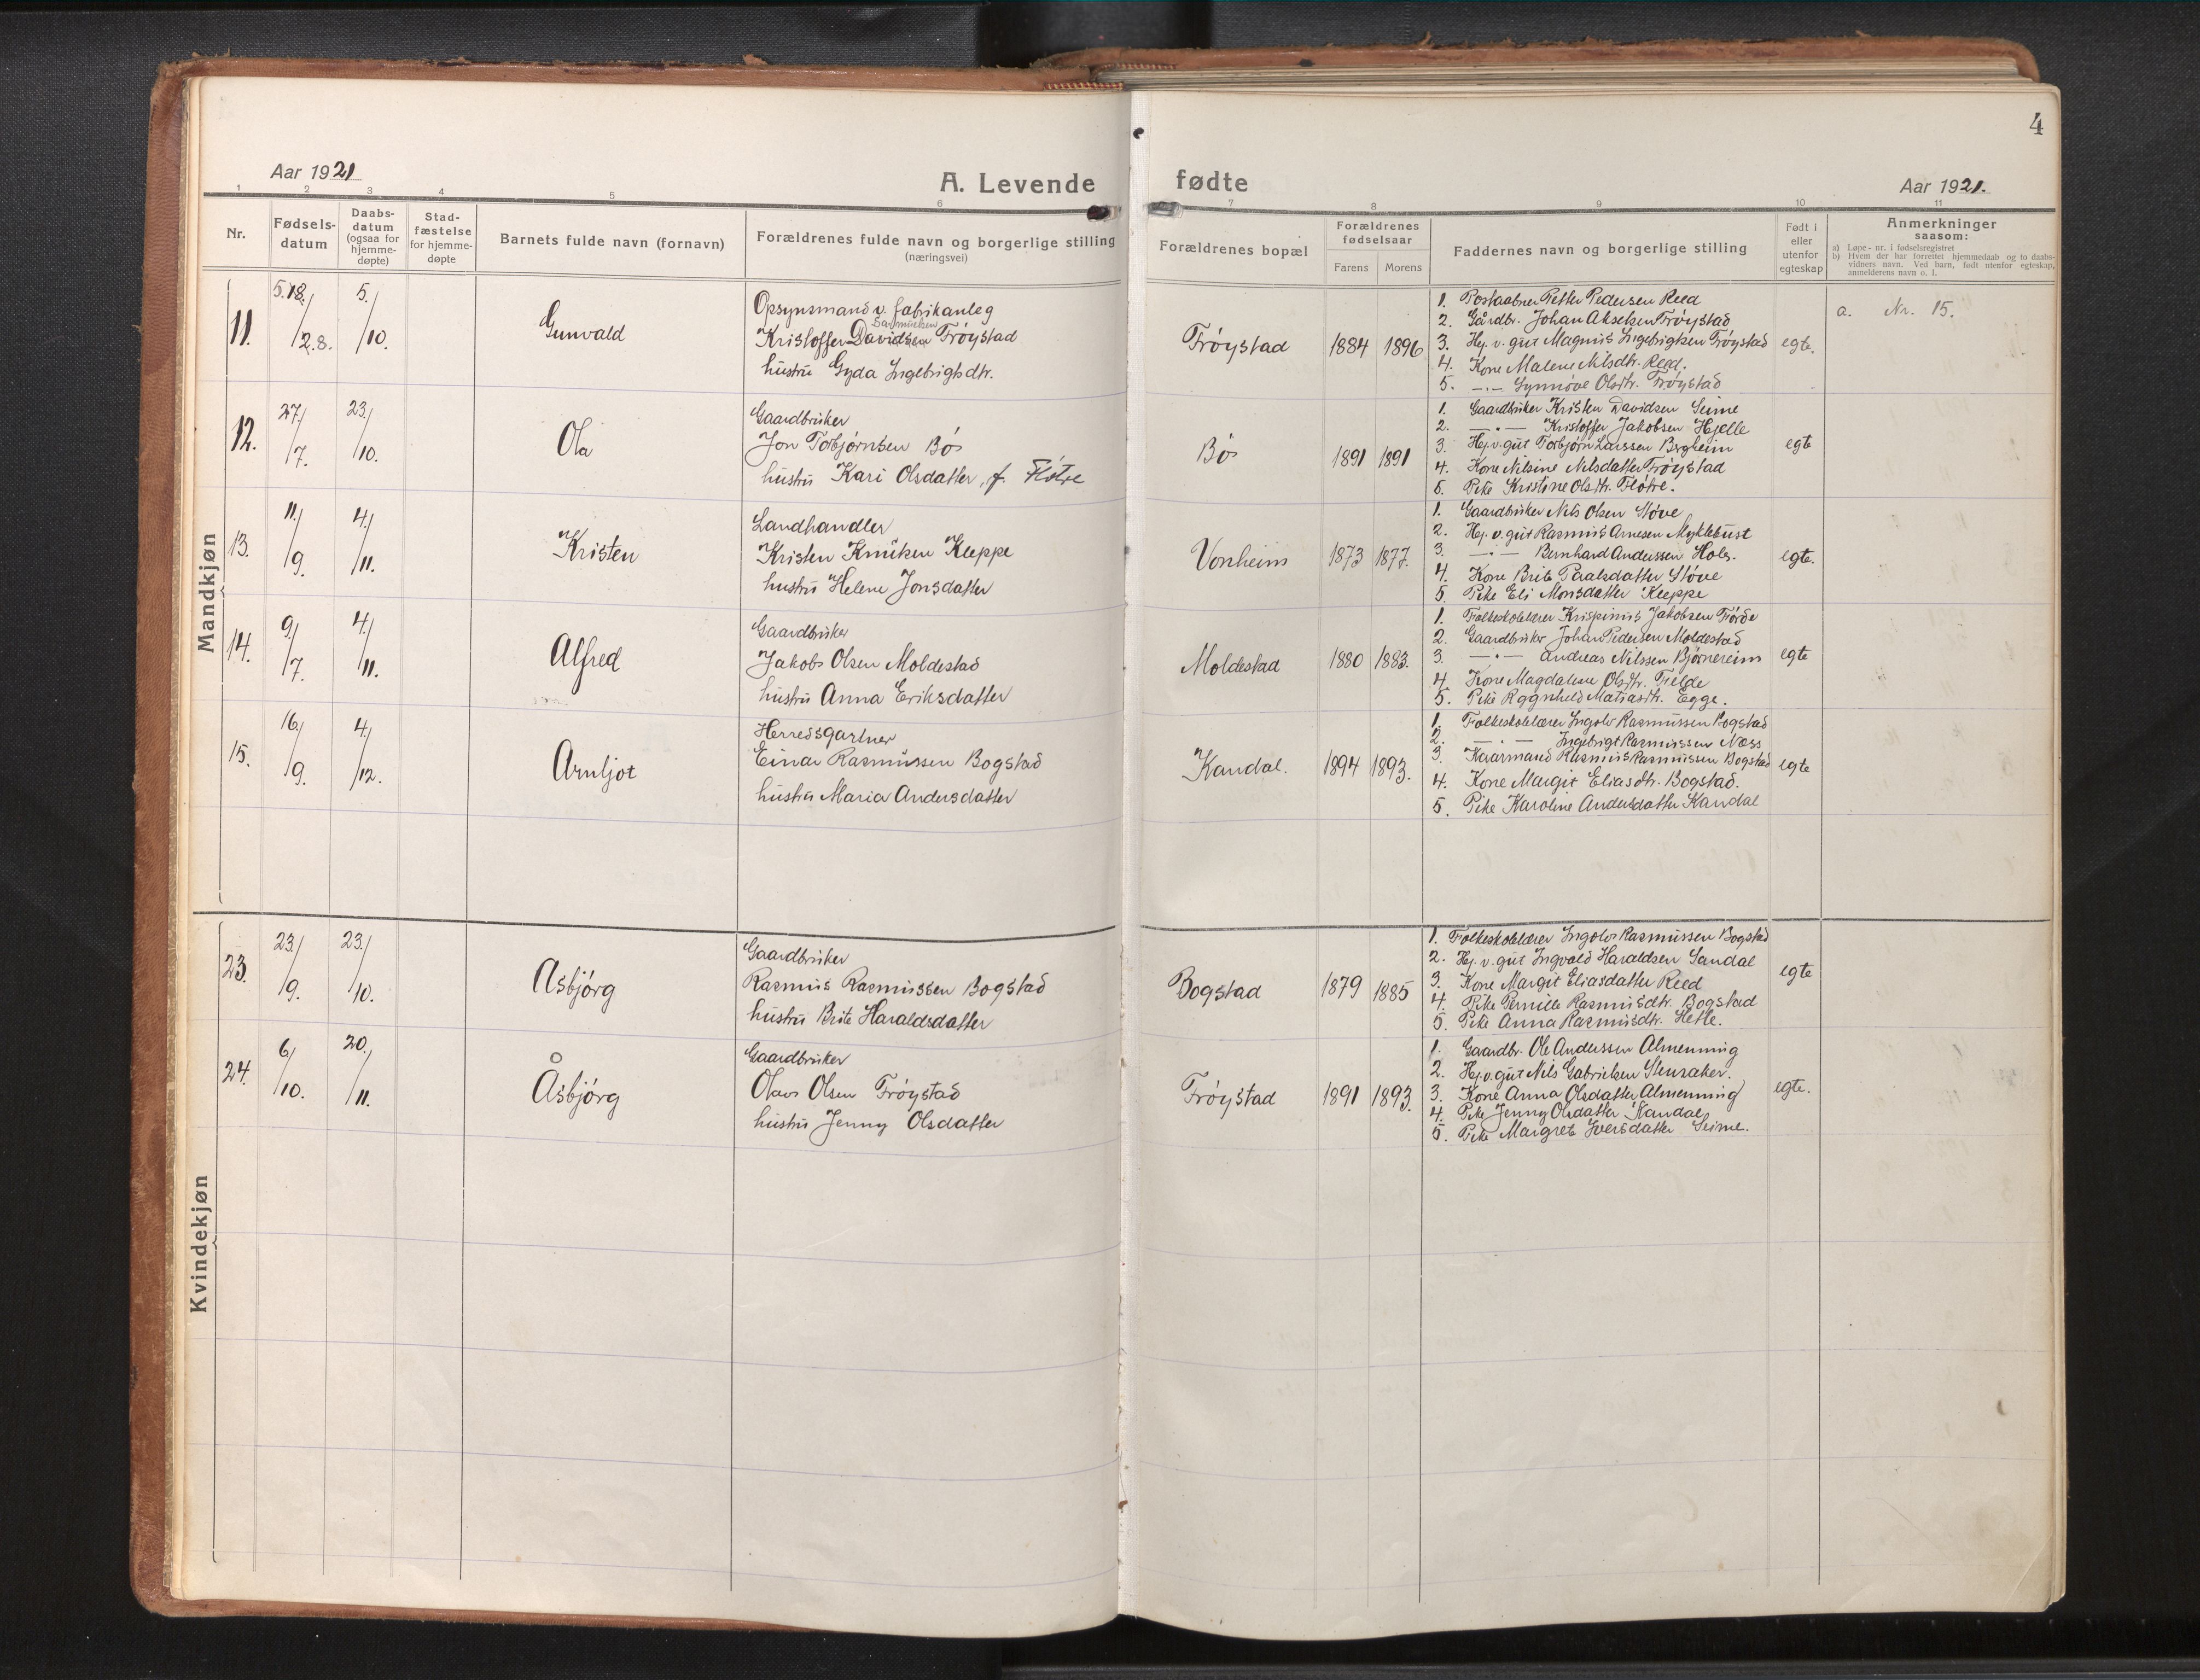 4
Aar 1921
A. Levende
fødte
Aar 1921.
1 2 3 4 5 6 7 8 9 10 11
Nr.
Fødsels-
datum
Daabs-
datum
(ogsaa for
hjemme-
døpte)
Stad-
fæstelse
for hjemme-
døpte
Barnets fulde navn (fornavn)
Forældrenes fulde navn og borgerlige stilling
(næringsvei)
Forældrenes bopæl
Forældrenes
fødselsaar
Farens Morens
Faddernes navn og borgerlige stilling
Født i
eller
utenfor
egteskap
Anmerkninger
saasom:
a) Løpe-nr. i fødselsregistret
b) Hvem der har forrettet hjemmedaab og to daabs-
vidners navn. Ved barn, født utenfor egteskap,
anmelderens navn o. l.
Mandkjøn
11.
2.8.
5./10.
Gunvald
Opsynsmand v. fabrikanleg
Kristoffer Davidsen Frøystad
hustru Gyda Ingebrigtsdtr.
Frøystad
1884 1896
1. Postaabner Petter Pedersen Reed
2. Gårdbr. Johan Akselsen Frøystad
3. Hj. v. gut Magnus Ingebrigtsen Frøystad
4. Kone Malene Nilsdtr. Reed.
5. —·— Synnøve Olsdtr. Frøystad
egte.
a. Nr. 15.
12.
27./7.
23./10.
Ola
Gaardbruker
Jon Torbjørnsen Bø
hustru Kari Olsdatter, f. Fløtre
Bø
1891 1891
1. Gaardbruker Kristen Davidsen Seime
2. —·— Kristoffer Jakobsen Hjelle
3. Hj. v. gut Torbjørn Larssen Bergheim
4. Kone Nilsine Nilsdatter Frøystad
5. Pike Kristine Olsdtr. Fløtre.
egte
13.
11./9.
4./11.
Kristen
Landhandler
Kristen Knutsen Kleppe
hustru Helene Jonsdatter
Vonheim
1873 1877.
1. Gaardbruker Nils Olsen Støve
2. Hj. v. gut Rasmus Arnesen Myklebust
3. —·— Bernhard Anderssen Hole.
4. Kone Brite Paalsdatter Støve
5. Pike Eli Monsdatter Kleppe
egte.
14.
9./7.
4./11.
Alfred
Gaardbruker
Jakob Olsen Moldestad
hustru Anna Eriksdatter
Moldestad
1880 1883.
1. Folkeskolelærer Krispinus Jakobsen Førde
2. Gaardbruker Johan Pedersen Moldestad
3. —·— Andreas Nilssen Bjørnereim
4. Kone Magdalene Olsdtr. Fjelde
5. Pike Ragnhild Matiasdtr. Egge.
egte
15.
16./9.
4./12.
Arnljot
Herredsgartner
Einar Rasmussen Bogstad
hustru Maria Andersdatter
Kandal.
1894 1893.
1. Folkeskolelærer Ingolv Rasmussen Bogstad
2. —·— Ingebrigt Rasmussen Næss
3. Kaarmand Rasmus Rasmussen Bogstad
4. Kone Margit Eliasdtr. Bogstad.
5. Pike Karoline Andersdatter Kandal
egte
Kvindekjøn
23.
23./9.
23./10.
Asbjørg
Gaardbruker
Rasmus Rasmussen Bogstad
hustru Brite Haraldsdatter
Bogstad
1879 1885
1. Folkeskolelærer Ingolv Rasmussen Bogstad
2. Hj. v. gut Ingvald Haraldsen Sandal
3. Kone Margit Eliasdatter Reed
4. Pike Pernille Rasmusdtr. Bogstad
5. Pike Anna Rasmusdtr. Hetle.
egte
24.
6./10.
20./11.
Åsbjørg
Gaardbruker
Olav Olsen Frøystad
hustru Jenny Olsdatter
Frøystad
1891 1893.
1. Gaardbr. Ole Anderssen Almenning
2. Hj. v. gut Nils Gabrielsen Stensaker.
3. Kone Anna Olsdatter Almenning
4. Pike Jenny Olsdatter Kandal
5. Pike Margrete Iversdatter Seime.
egte.